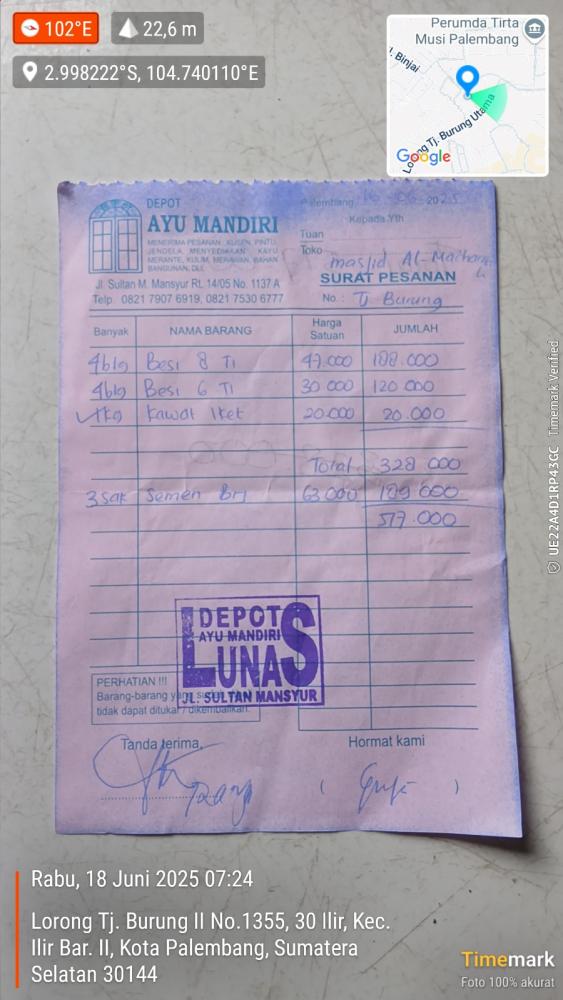 102°E
22,6 m
2.998222°S, 104.740110°E
Perumda Tirta
Musi Palembang
l. Binjai
Lorong Tj. Burung Utama
Google
DEPOT
AYU MANDIRI
MENERIMA PESANAN: KUSEN, PINTU,
JENDELA, MENYEDIAKAN: KAYU
MERANTE, KULIM, MERAWAN, BAHAN
BANGUNAN, DLL
Jl. Sultan M. Mansyur RL. 14/05 No. 1137 A
Telp. 0821 7907 6919, 0821 7530 6777
Palembang, 2025
Kepada Yth
Tuan
Toko
masjid Al-
SURAT PESANAN
No. : Tj Burung
Banyak NAMA BARANG Harga Satuan JUMLAH
4blg Besi 8 TI 47.000 188.000
4blg Besi 6 TI 30 000 120 000
1kg Kawat Iket 20.000 20.000
Total 328 000
3 sak Semen BM 63 000 189 000
517.000
DEPOT
AYU MANDIRI
LUNAS
JL. SULTAN MANSYUR
PERHATIAN !!!
Barang-barang yang sudah
tidak dapat ditukar / dikembalikan.
Tanda terima, Hormat kami
Rabu, 18 Juni 2025 07:24
Lorong Tj. Burung II No.1355, 30 Ilir, Kec.
Ilir Bar. II, Kota Palembang, Sumatera
Selatan 30144
Timemark
Foto 100% akurat
UE22A4D1RP43GC Timemark Verified